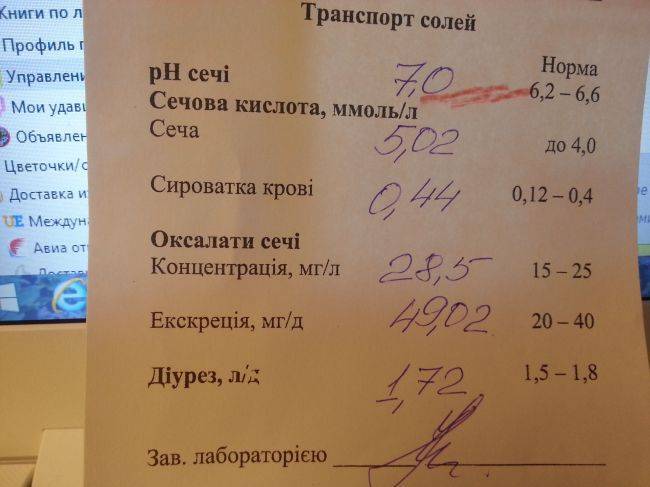 Книги по л
Профиль г
Управлени
Мои удав
Объявлен
Цветочки/с
Доставка и
UE Междуна
Авиа от
Транспорт солей
Норма
рН сечі 7,0 6,2 – 6,6
Сечова кислота, ммоль/л
Сеча 5,02 до 4,0
Сироватка крові 0,44 0,12 – 0,4
Оксалати сечі
Концентрація, мг/л 28,5 15 – 25
Екскреція, мг/д 49,02 20 – 40
Діурез, л/д 1,72 1,5 – 1,8
Зав. лабораторією